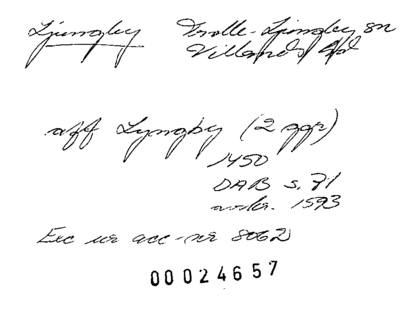 Ljungby Trolle-Ljungby sn
Villands hd
aff Lyngby (2 ggr)
1450
DAB s. 71
avskr. 1593
Exc ur acc-nr 8062
00024657